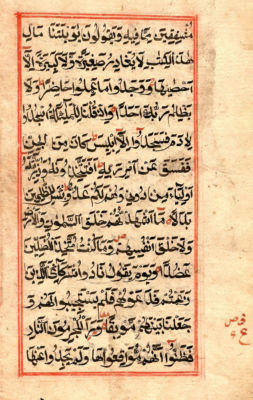 مشفقين مما فيه ويقولون يويلتنا مال
هذا الكتب لا يغادر صغيرة ولا كبيرة الا
احصيها ووجدوا ما عملوا حاضرا ولا
يظلم ربك احدا واذ قلنا للملئكة اسجدوا
لادم فسجدوا الا ابليس كان من الجن
ففسق عن امر ربه افتتخذونه وذريته
اولياء من دوني وهم لكم عدو بئس للظلمين
بدلا ما اشهدتهم خلق السموت والارض
ولا خلق انفسهم وما كنت متخذ المضلين
عضدا ويوم يقول نادوا شركائي الذين
زعمتم فدعوهم فلم يستجيبوا لهم و
جعلنا بينهم موبقا ورا المجرمون النار
فظنوا انهم مواقعوها ولم يجدوا عنها